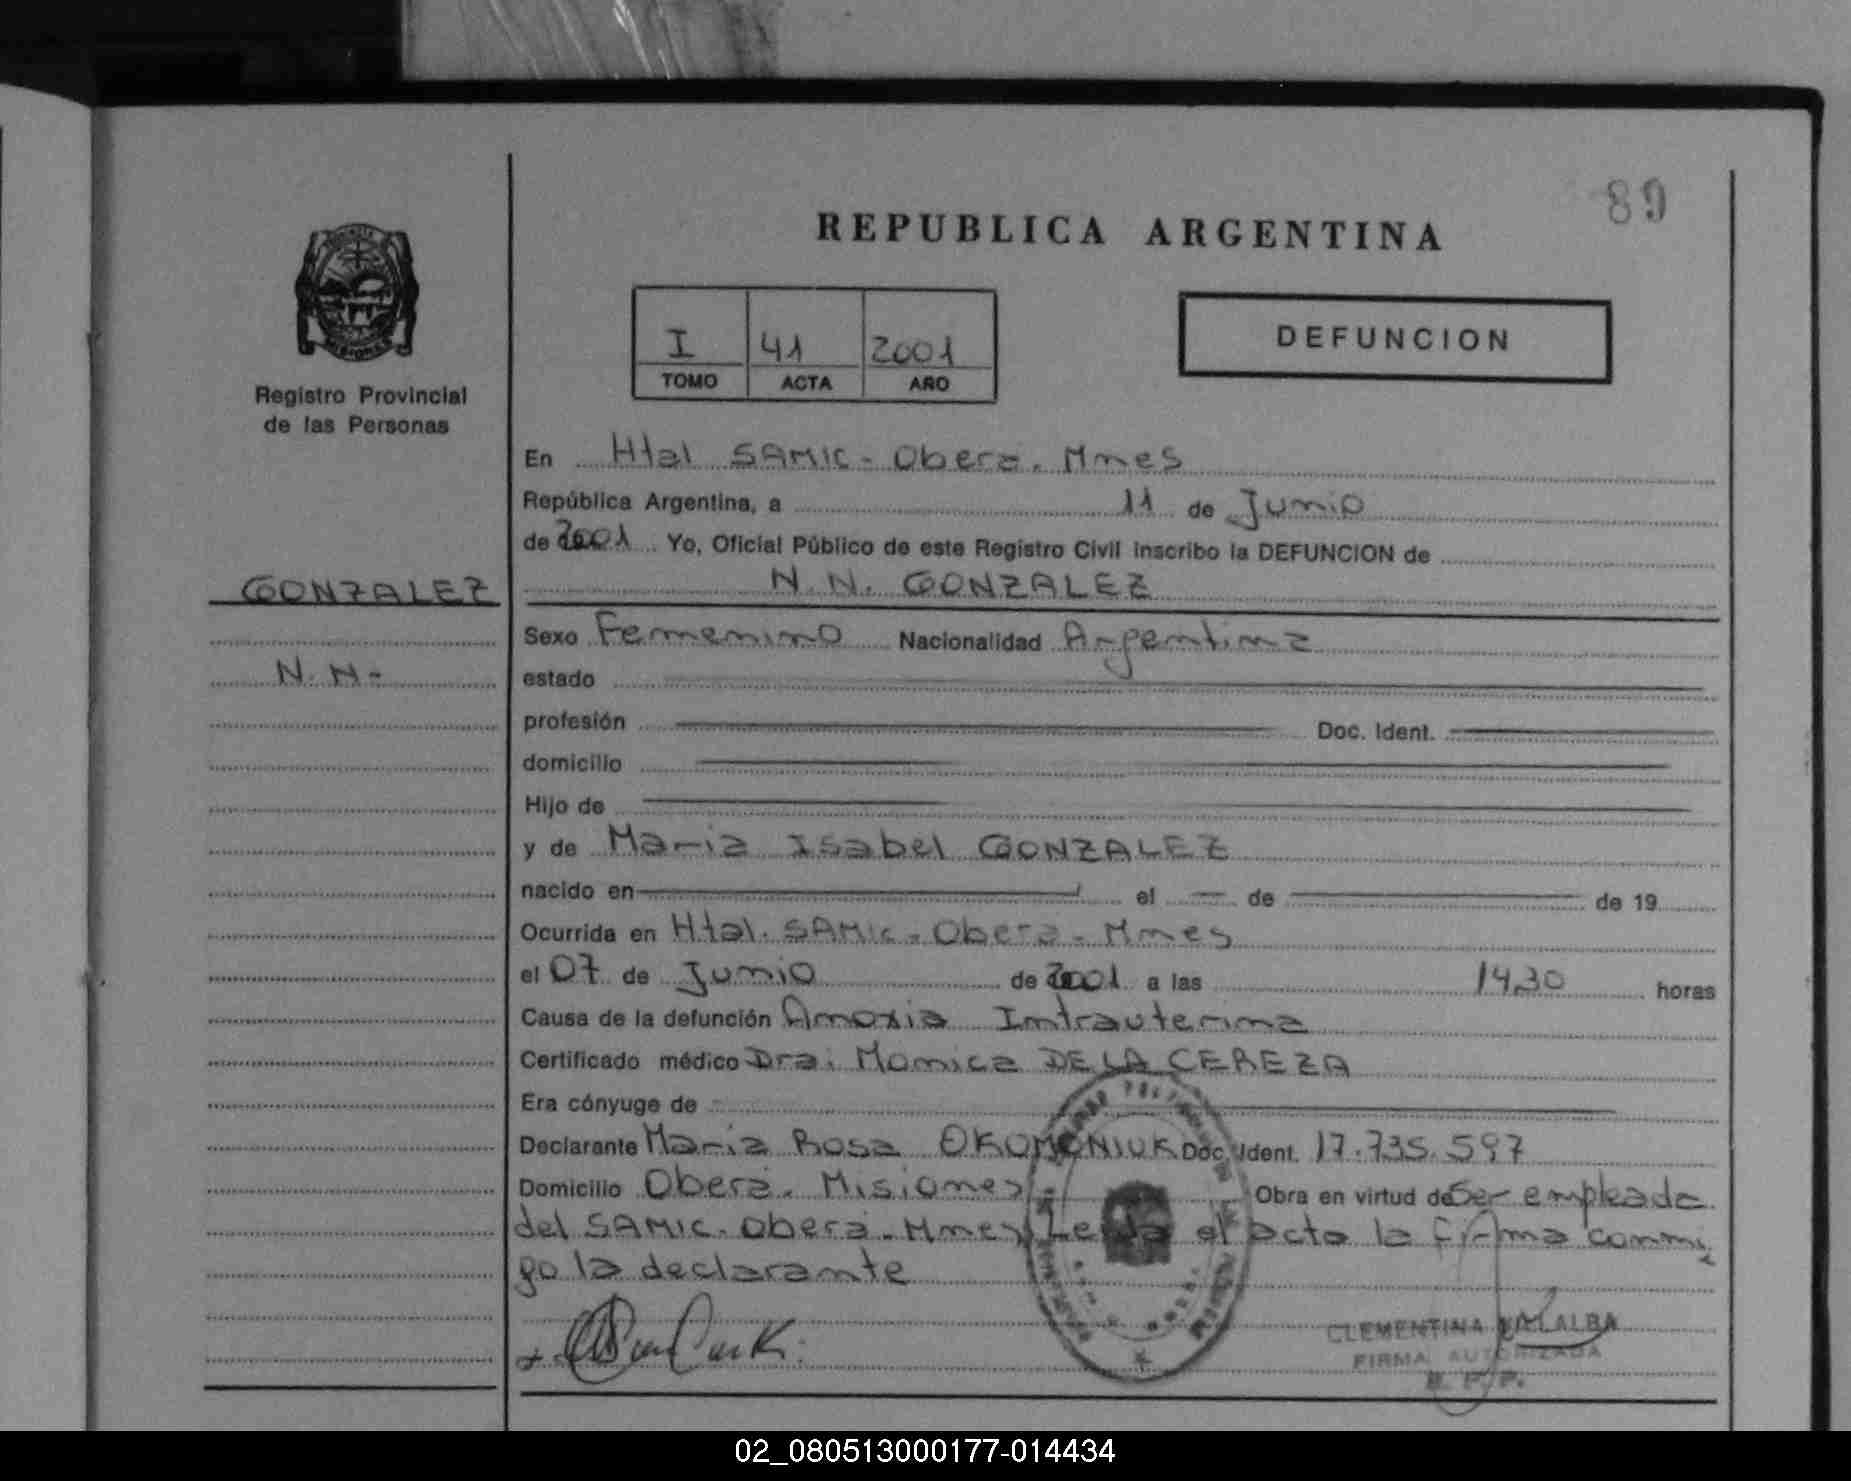 89
REPUBLICA ARGENTINA
MISIONES
Registro Provincial
de las Personas
I 41 2001
TOMO ACTA AÑO
DEFUNCION
En Htal SAMIC - Oberá. Mnes
República Argentina, a 11 de Junio
de 2001 Yo, Oficial Público de este Registro Civil inscribo la DEFUNCION de
N.N. GONZALEZ
GONZALEZ
N.N-
Sexo Femenino Nacionalidad Argentina
estado
profesión Doc. Ident.
domicilio
Hijo de
y de Maria Isabel GONZALEZ
nacido en el de de 19
Ocurrida en Htal. SAMIC - Oberá - Mnes
el 07 de Junio de 2001 a las 14,30 horas
Causa de la defunción Anoxia Intrauterina
Certificado médico Dra. Monica DE LA CEREZA
Era cónyuge de
Declarante Maria Rosa OKOMONIUK Doc. Ident. 17.735.597
Domicilio Oberá. Misiones Obra en virtud de Ser empleada
del SAMIC - Oberá - Mnes Leida el acta la firma conmi
go la declarante
CLEMENTINA VILLALBA
FIRMA AUTORIZADA
R. P. P.
02_080513000177-014434